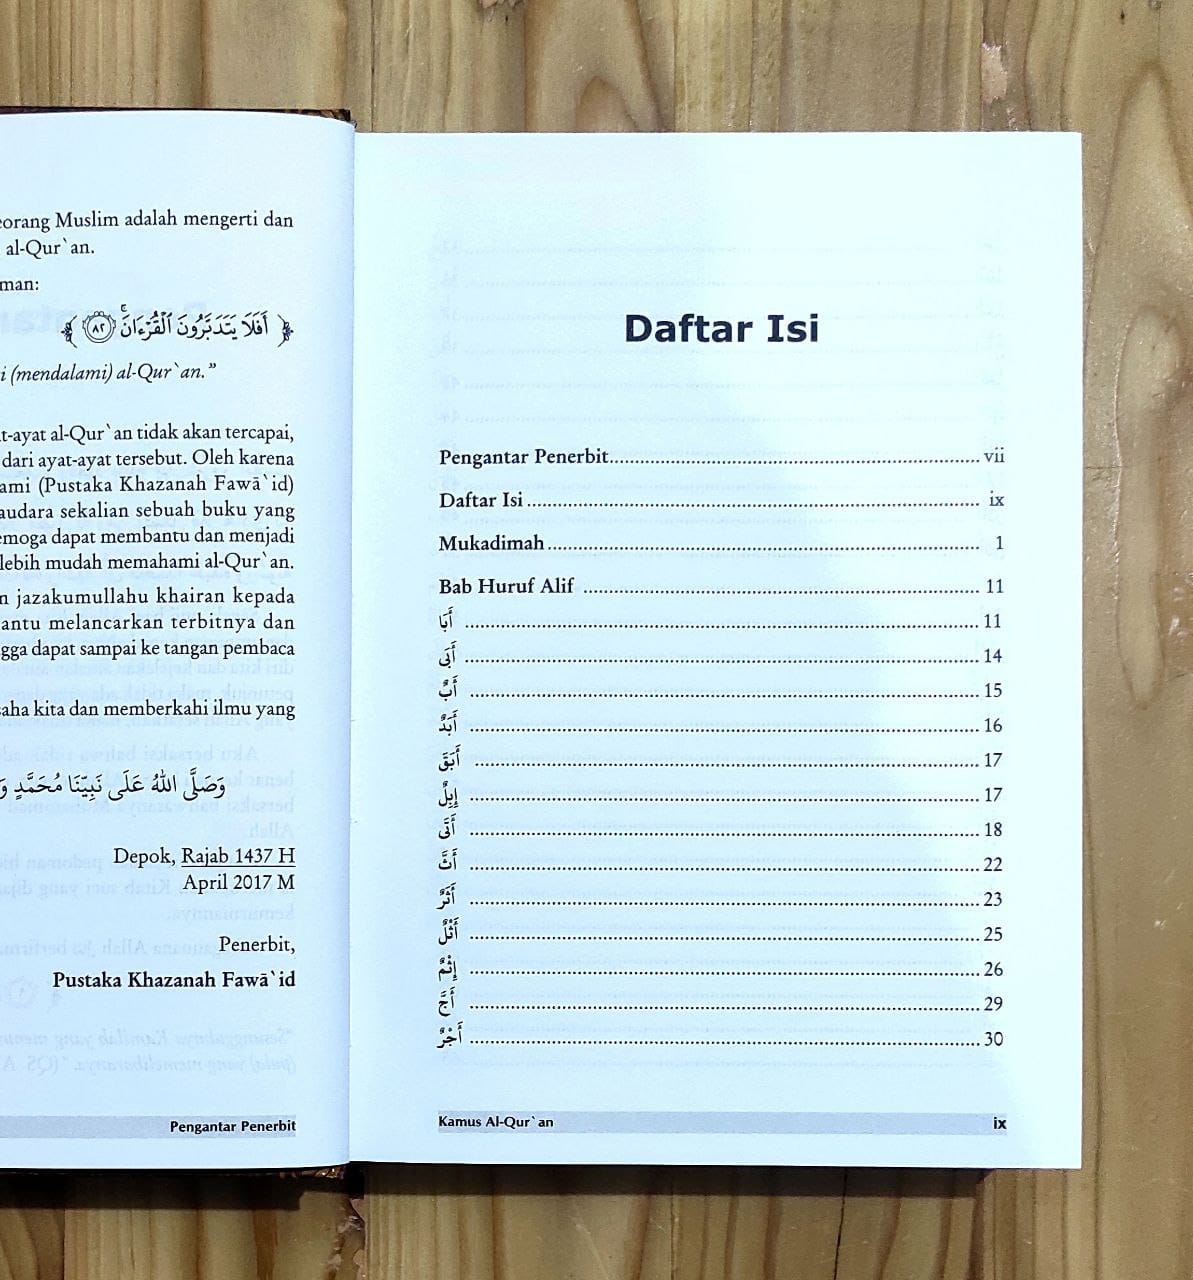 eorang Muslim adalah mengerti dan
al-Qur`an.
man:
﴿ أَفَلَا يَتَدَبَّرُونَ ٱلْقُرْءَانَۚ ۝٨٢ ﴾
i (mendalami) al-Qur`an.”
t-ayat al-Qur`an tidak akan tercapai,
dari ayat-ayat tersebut. Oleh karena
ami (Pustaka Khazanah Fawā`id)
audara sekalian sebuah buku yang
emoga dapat membantu dan menjadi
lebih mudah memahami al-Qur`an.
n jazakumullahu khairan kepada
antu melancarkan terbitnya dan
gga dapat sampai ke tangan pembaca
aha kita dan memberkahi ilmu yang
وَصَلَّى اللهُ عَلَى نَبِيِّنَا مُحَمَّدٍ وَ
Depok, Rajab 1437 H
April 2017 M
Penerbit,
Pustaka Khazanah Fawā`id
Pengantar Penerbit
Daftar Isi
Pengantar Penerbit........ vii
Daftar Isi ........ ix
Mukadimah ........ 1
Bab Huruf Alif ........ 11
أَبَا ........ 11
أَبَى ........ 14
أَبٌّ ........ 15
أَبَدٌ ........ 16
أَبَقَ ........ 17
إِبِلٌ ........ 17
أَتَى ........ 18
أَثَّ ........ 22
أَثَرٌ ........ 23
أَثْلٌ ........ 25
إِثْمٌ ........ 26
أَجَّ ........ 29
أَجْرٌ ........ 30
Kamus Al-Qur`an ix